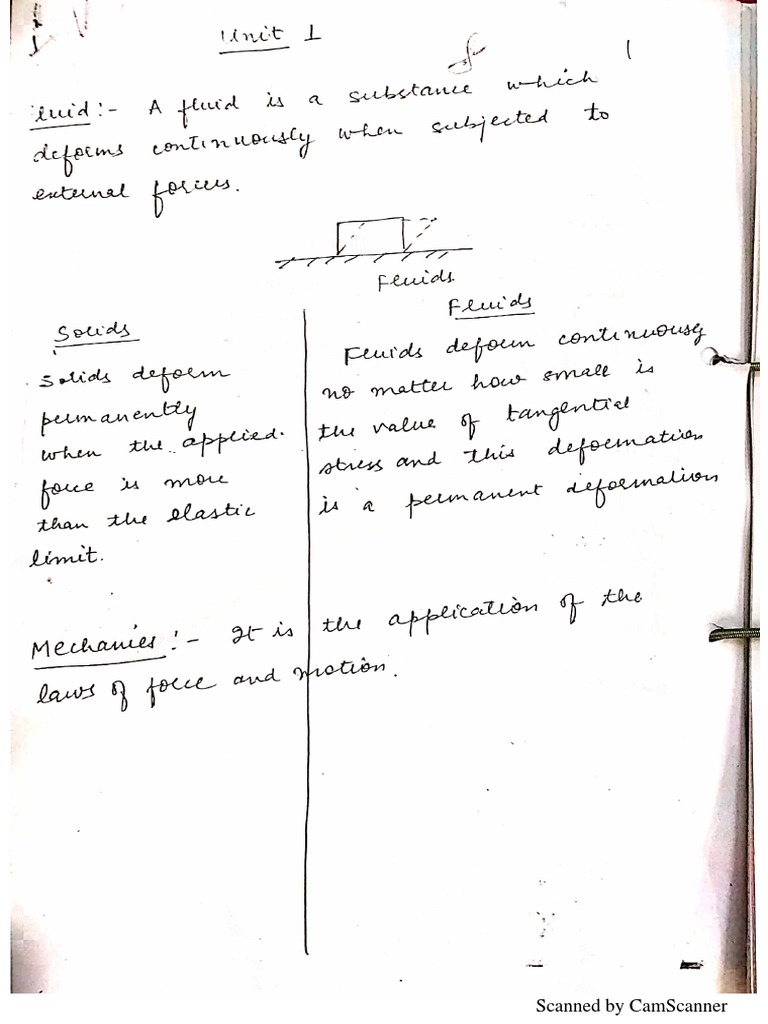 Unit 1
1
Fluid :- A fluid is a substance which
deforms continuously when subjected to
external forces.
Fluids
Solids
Solids deform
permanently
when the applied
force is more
than the elastic
limit.
Fluids
Fluids deform continuously
no matter how small is
the value of tangential
stress and this deformation
is a permanent deformation
Mechanics :- It is the application of the
laws of force and motion.
Scanned by CamScanner